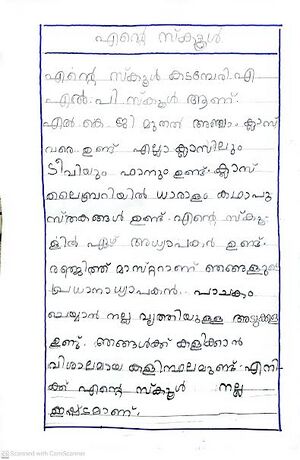 എന്റെ സ്കൂൾ
എന്റെ സ്കൂൾ കടമ്പേരി.എ
എൽ.പി.സ്കൂൾ ആണ്.
എൽ കെ ജി മുതൽ അഞ്ചാം ക്ലാസ്
വരെ ഉണ്ട് എല്ലാ ക്ലാസിലും
ടീവിയും ഫാനും ഉണ്ട്. ക്ലാസ്
ലൈബ്രറിയിൽ ധാരാളം കഥാപു
സ്തകങ്ങൾ ഉണ്ട്. എന്റെ സ്കൂ
ളിൽ ഏഴ് അധ്യാപകർ ഉണ്ട്.
രഞ്ജിത്ത് മാസ്റ്ററാണ് ഞങ്ങളുടെ
പ്രധാനാധ്യാപകൻ. പാചകം
ചെയ്യാൻ നല്ല വൃത്തിയുള്ള അടുക്കള
ഉണ്ട്. ഞങ്ങൾക്ക് കളിക്കാൻ
വിശാലമായ കളിസ്ഥലമുണ്ട്. എനി
ക്ക് എന്റെ സ്കൂൾ നല്ല
ഇഷ്ടമാണ്.
Scanned with CamScanner